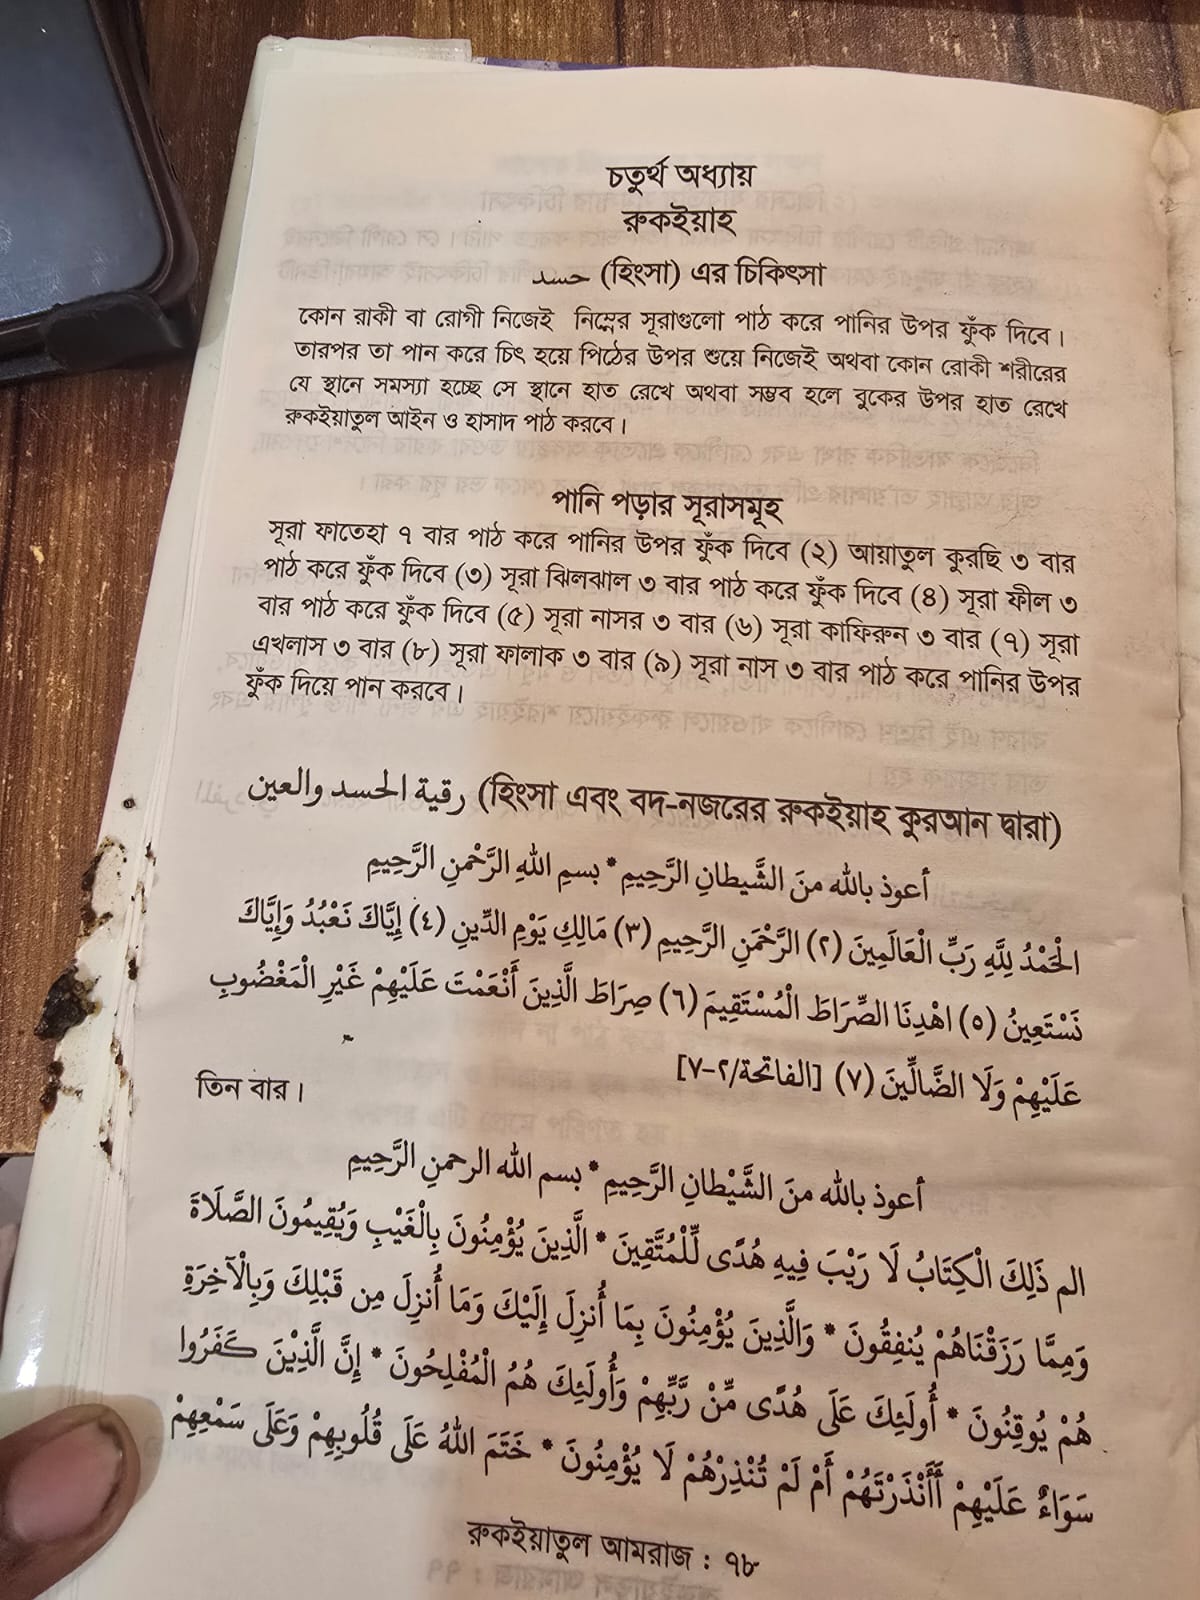 চতুর্থ অধ্যায়
রুকইয়াহ
حسد (হিংসা) এর চিকিৎসা
কোন রাকী বা রোগী নিজেই নিম্নের সূরাগুলো পাঠ করে পানির উপর ফুঁক দিবে।
তারপর তা পান করে চিৎ হয়ে পিঠের উপর শুয়ে নিজেই অথবা কোন রোকী শরীরের
যে স্থানে সমস্যা হচ্ছে সে স্থানে হাত রেখে অথবা সম্ভব হলে বুকের উপর হাত রেখে
রুকইয়াতুল আইন ও হাসাদ পাঠ করবে।
পানি পড়ার সূরাসমূহ
সূরা ফাতেহা ৭ বার পাঠ করে পানির উপর ফুঁক দিবে (২) আয়াতুল কুরছি ৩ বার
পাঠ করে ফুঁক দিবে (৩) সূরা ঝিলঝাল ৩ বার পাঠ করে ফুঁক দিবে (৪) সূরা ফীল ৩
বার পাঠ করে ফুঁক দিবে (৫) সূরা নাসর ৩ বার (৬) সূরা কাফিরুন ৩ বার (৭) সূরা
এখলাস ৩ বার (৮) সূরা ফালাক ৩ বার (৯) সূরা নাস ৩ বার পাঠ করে পানির উপর
ফুঁক দিয়ে পান করবে।
رقية الحسد والعين (হিংসা এবং বদ-নজরের রুকইয়াহ কুরআন দ্বারা)
أعوذ بالله منَ الشَّيطانِ الرَّجِيمِ * بسمِ اللهِ الرَّحْمنِ الرَّحِيمِ
الْحَمْدُ لِلَّهِ رَبِّ الْعَالَمِينَ (٢) الرَّحْمَنِ الرَّحِيمِ (٣) مَالِكِ يَوْمِ الدِّينِ (٤) إِيَّاكَ نَعْبُدُ وَإِيَّاكَ
نَسْتَعِينُ (٥) اهْدِنَا الصِّرَاطَ الْمُسْتَقِيمَ (٦) صِرَاطَ الَّذِينَ أَنْعَمْتَ عَلَيْهِمْ غَيْرِ الْمَغْضُوبِ
عَلَيْهِمْ وَلَا الضَّالِّينَ (٧) [الفاتحة/٢-٧]
তিন বার।
أعوذ بالله منَ الشَّيْطانِ الرَّجِيمِ * بسم الله الرحمنِ الرَّحِيمِ
الم ذَلِكَ الْكِتَابُ لَا رَيْبَ فِيهِ هُدًى لِّلْمُتَّقِينَ * الَّذِينَ يُؤْمِنُونَ بِالْغَيْبِ وَيُقِيمُونَ الصَّلَاةَ
وَمِمَّا رَزَقْنَاهُمْ يُنفِقُونَ * وَالَّذِينَ يُؤْمِنُونَ بِمَا أُنزِلَ إِلَيْكَ وَمَا أُنزِلَ مِن قَبْلِكَ وَبِالْآخِرَةِ
هُمْ يُوقِنُونَ * أُولَئِكَ عَلَى هُدًى مِّنْ رَّبِّهِمْ وَأُولَئِكَ هُمُ الْمُفْلِحُونَ * إِنَّ الَّذِيْنَ كَفَرُوا
سَوَاءٌ عَلَيْهِمْ أَأَنْذَرْتَهُمْ أَمْ لَمْ تُنْذِرْهُمْ لَا يُؤْمِنُونَ * خَتَمَ اللهُ عَلَى قُلُوبِهِمْ وَعَلَى سَمْعِهِمْ
রুকইয়াতুল আমরাজ : ৭৮